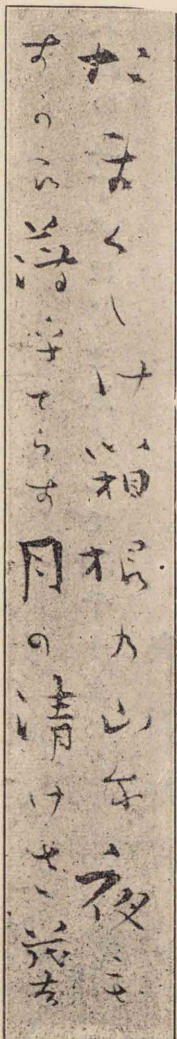 たまくしけ箱根の山に夜も
すから薄をてらす月の清けさ 茂吉